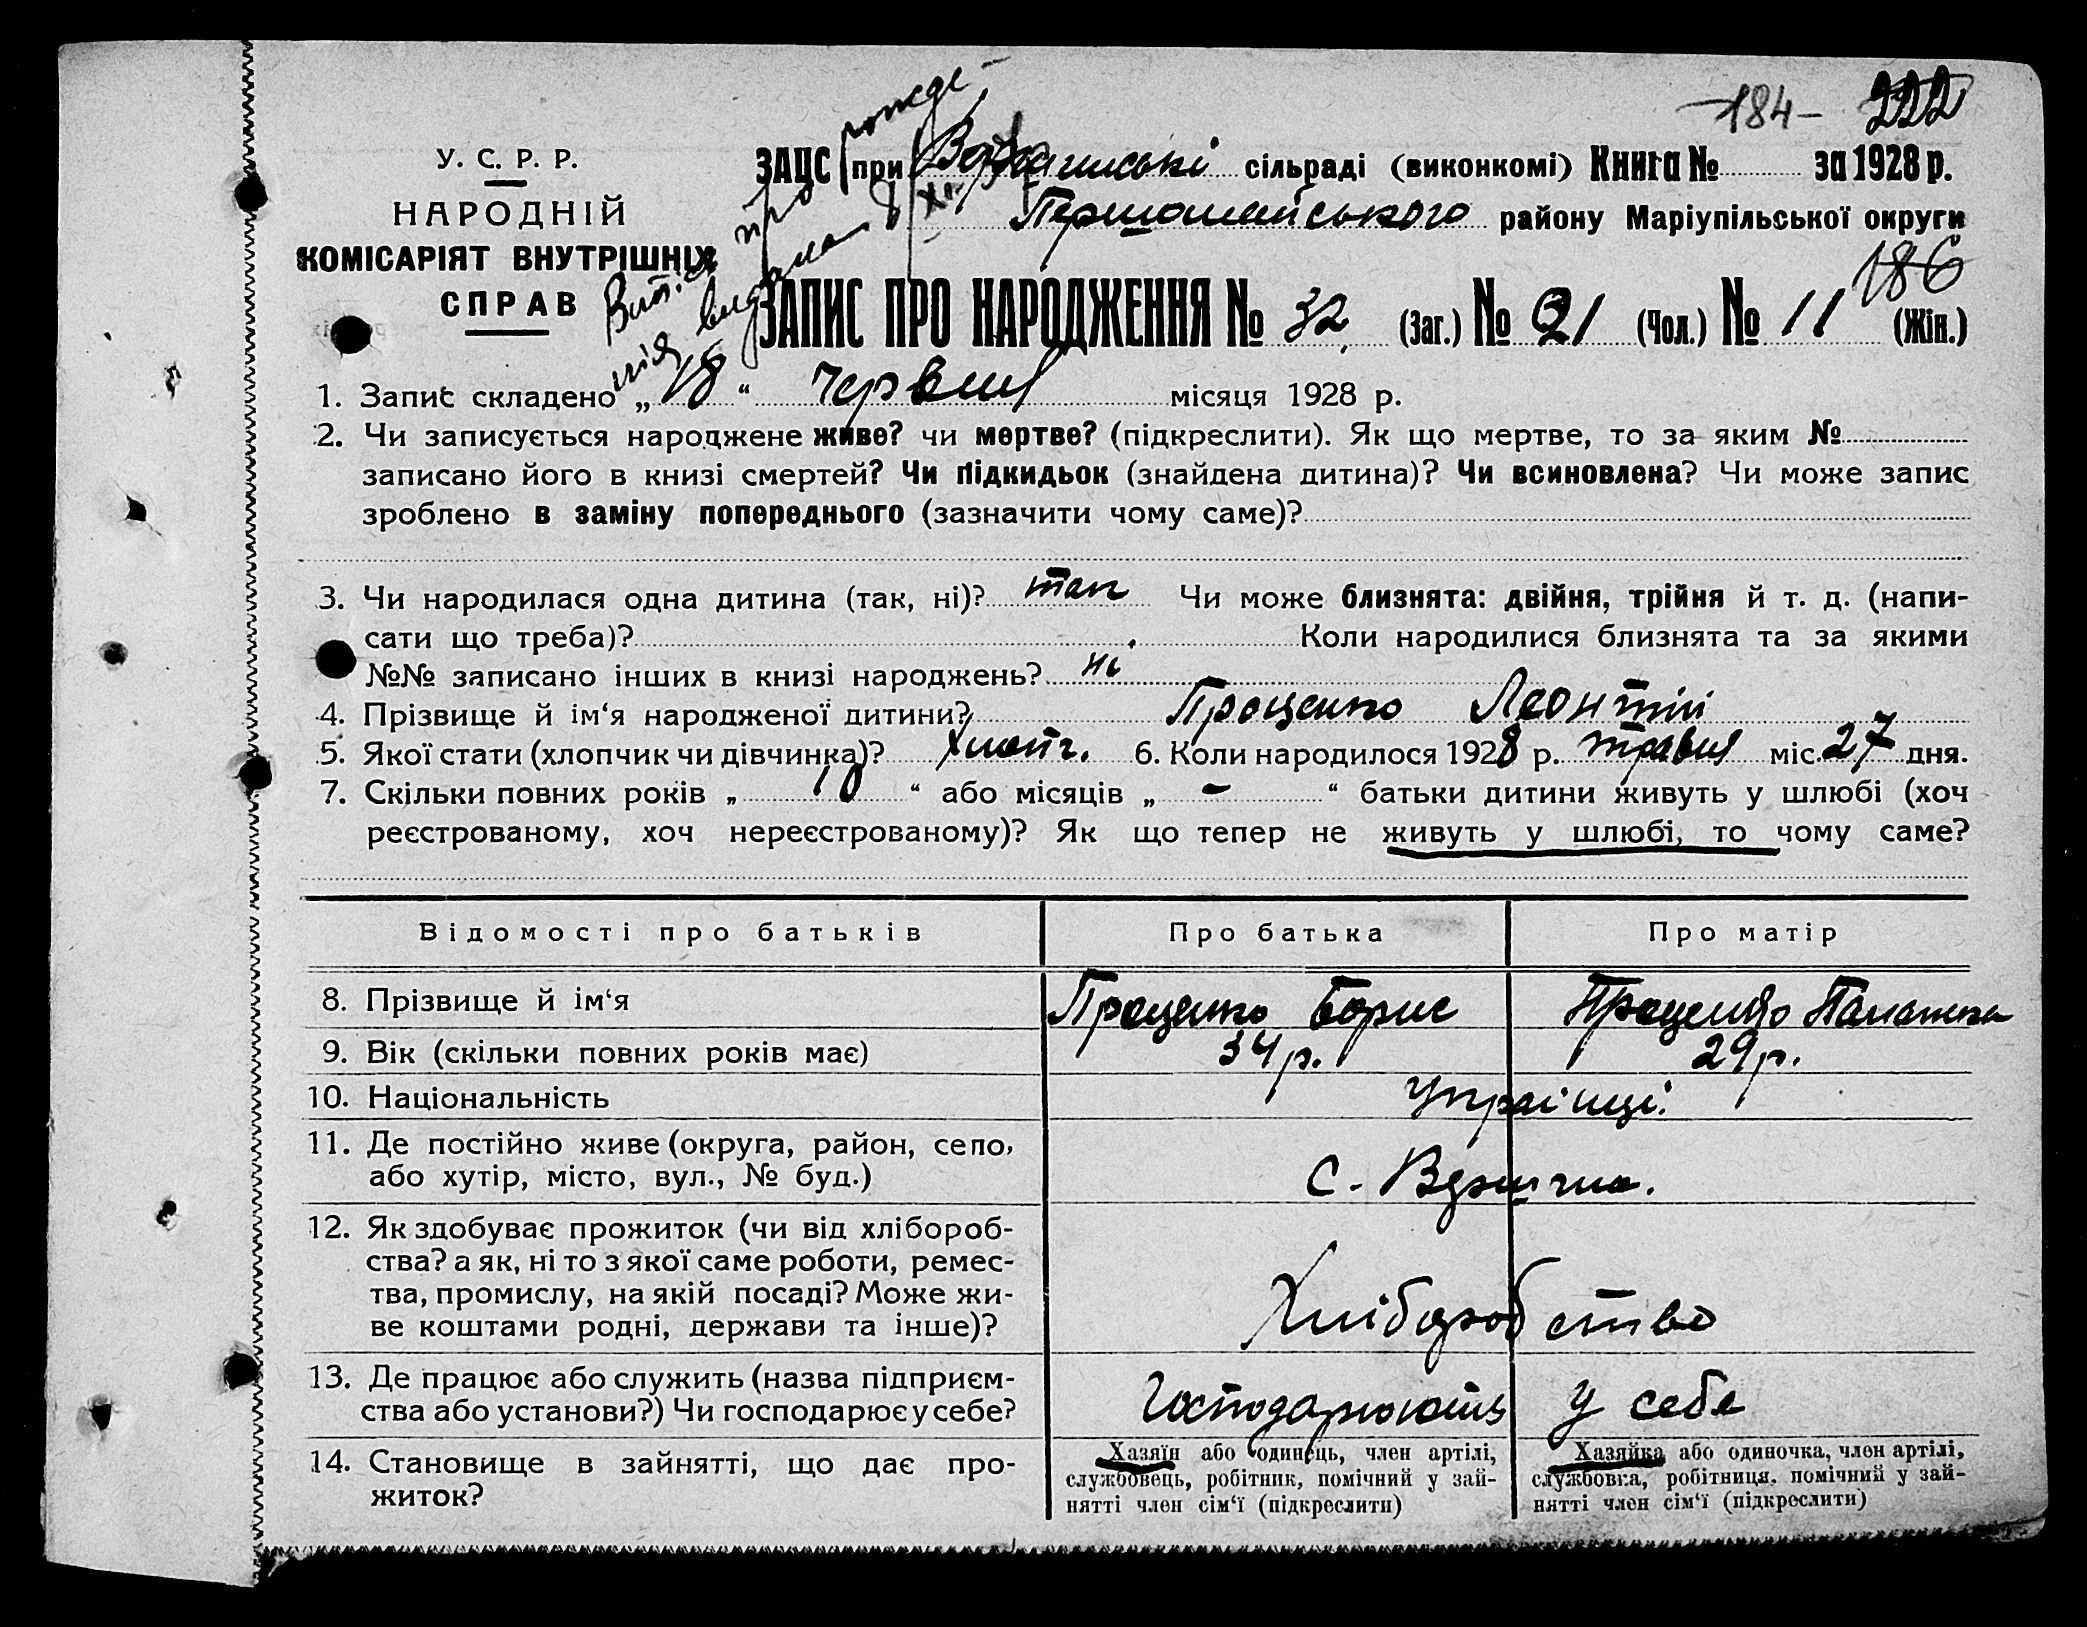 184 222
У. С. Р. Р.
НАРОДНІЙ
КОМІСАРІЯТ ВНУТРІШНІХ
СПРАВ
ЗАЦС при сільраді (виконкомі) Книга № за 1928 р.
Першомайського району Маріупільської округи
186
ЗАПИС ПРО НАРОДЖЕННЯ № 32 (Заг.) № 21 (Чол.) № 11 (Жін.)
1. Запис складено „18“ червня місяця 1928 р.
2. Чи записується народжене живе? чи мертве? (підкреслити). Як що мертве, то за яким №
записано його в книзі смертей? Чи підкидьок (знайдена дитина)? Чи всиновлена? Чи може запис
зроблено в заміну попереднього (зазначити чому саме)?
3. Чи народилася одна дитина (так, ні)? так Чи може близнята: двійня, трійня й т. д. (напи-
сати що треба)? Коли народилися близнята та за якими
№№ записано інших в книзі народжень? ні
4. Прізвище й ім‘я народженої дитини? Проценко Леонтій
5. Якої стати (хлопчик чи дівчинка)? хлопч. 6. Коли народилося 1928 р. травня міс. 27 дня.
7. Скільки повних років „ 10 “ або місяців „ - “ батьки дитини живуть у шлюбі (хоч
реєстрованому, хоч нереєстрованому)? Як що тепер не живуть у шлюбі, то чому саме?
Відомості про батьків Про батька Про матір
8. Прізвище й ім‘я Проценко Борис Проценко
9. Вік (скільки повних років має) 34 р. 29 р.
10. Національність Українці.
11. Де постійно живе (округа, район, село,
або хутір, місто, вул., № буд.) с.
12. Як здобуває прожиток (чи від хлібороб-
ства? а як, ні то з якої саме роботи, ремес-
тва, промислу, на якій посаді? Може жи-
ве коштами родні, держави та інше)? Хліборобство
13. Де працює або служить (назва підприєм-
ства або установи?) Чи господарює у себе? Господарюють у себе
14. Становище в зайнятті, що дає про-
житок?
Хазяїн або одинець, член артілі,
службовець, робітник, помічний у зай-
нятті член сім‘ї (підкреслити)
Хазяйка або одиночка, член артілі,
службовка, робітниця, помічний у зай-
нятті член сім‘ї (підкреслити)